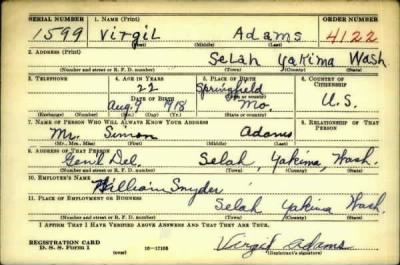 SERIAL NUMBER 1. NAME (Print) ORDER NUMBER
1599 Virgil Adams 4122
(First) (Middle) (Last)
2. ADDRESS (Print)
Selah Yakima Wash.
(Number and street or R. F. D. number) (Town) (County) (State)
3. TELEPHONE 4. AGE IN YEARS 5. PLACE OF BIRTH 6. COUNTRY OF CITIZENSHIP
22 Springfield
DATE OF BIRTH (Town or county)
Aug. 9 1918 Mo. U.S.
(Exchange) (Number) (Mo.) (Day) (Yr.) (State or country)
7. NAME OF PERSON WHO WILL ALWAYS KNOW YOUR ADDRESS 8. RELATIONSHIP OF THAT PERSON
Mr. Simon Adams
(Mr., Mrs., Miss) (First) (Middle) (Last)
9. ADDRESS OF THAT PERSON
Gen'l Del. Selah, Yakima, Wash.
(Number and street or R. F. D. number) (Town) (County) (State)
10. EMPLOYER'S NAME
William Snyder
11. PLACE OF EMPLOYMENT OR BUSINESS
Selah Yakima Wash.
(Number and street or R. F. D. number) (Town) (County) (State)
I AFFIRM THAT I HAVE VERIFIED ABOVE ANSWERS AND THAT THEY ARE TRUE.
REGISTRATION CARD
D. S. S. Form 1 16—17105 Virgil Adams
(Registrant's signature)